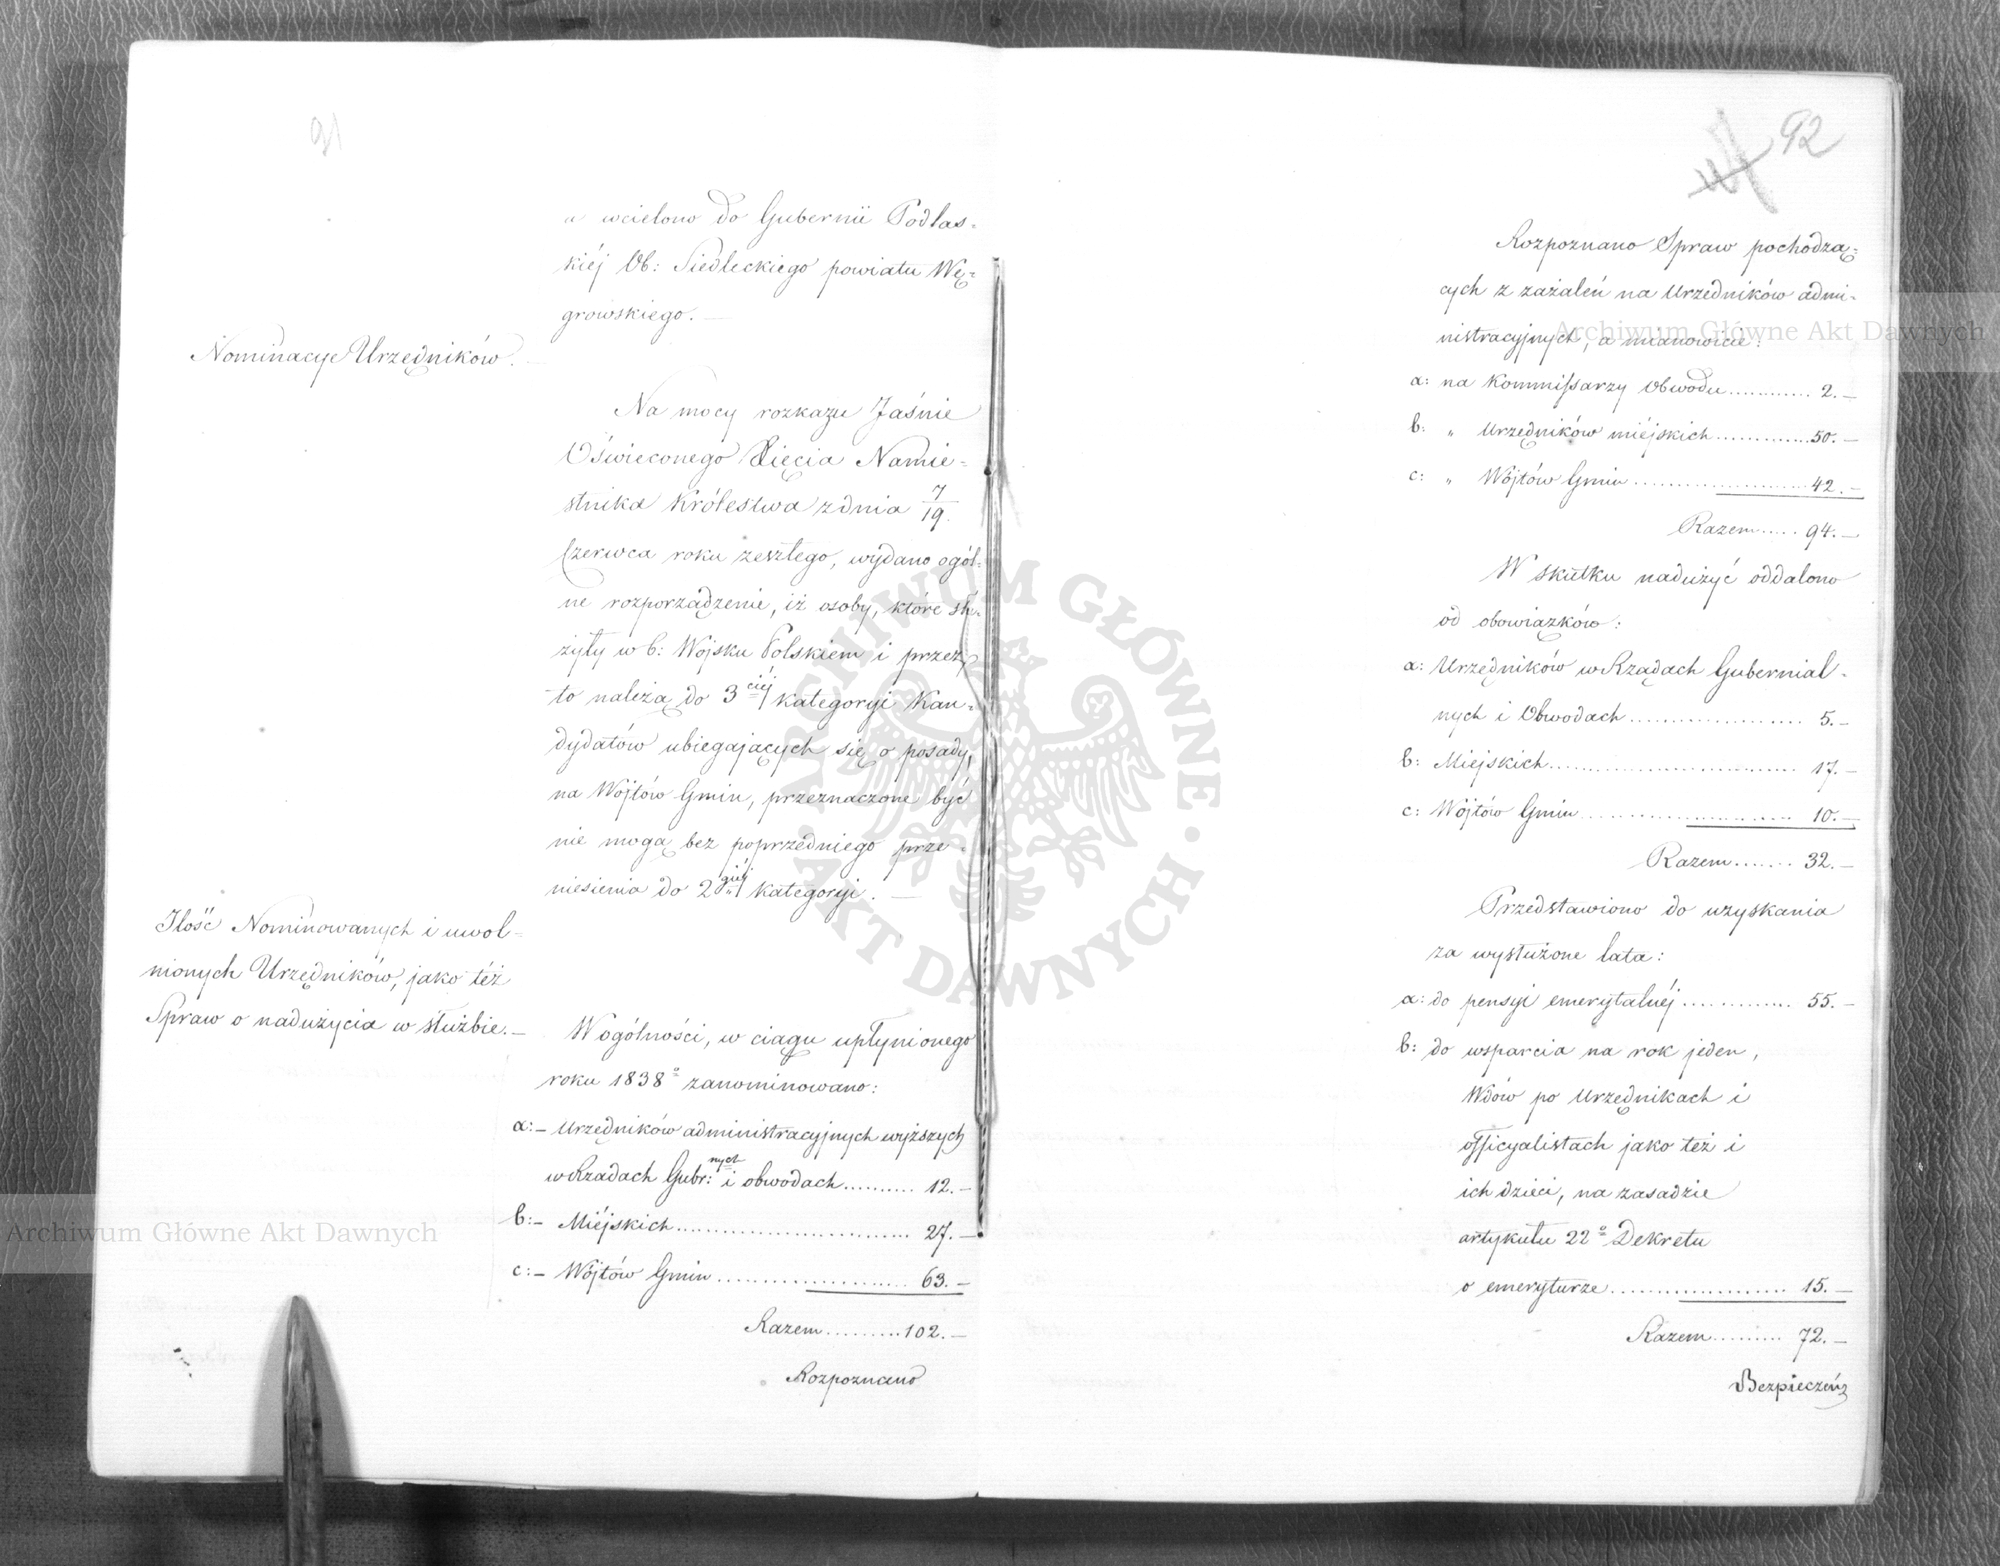 91
a wcielono do Gubernii Podlas=
kiéj Ob: Siedleckiego powiatu Wę=
growskiego. —
Nominacye Urzędników.
Na mocy rozkazu Jaśnie
Oświeconego Xięcia Namie=
stnika Królestwa z dnia 7/19.
Czerwca roku zeszłego, wydano ogól=
ne rozporządzenie, iż osoby, które słu=
żyły w b: Wojsku Polskiem i przez
to należą do 3 ciéj kategoryi Kan=
dydatów ubiegających się o posady,
na Wójtów Gmin, przeznaczone być
nie mogą bez poprzedniego prze=
niesienia do 2 giéj kategoryi. —
Ilość Nominowanych i uwol=
nionych Urzędników, jako też
Spraw o nadużycia w służbie. —
Wogólności, w ciągu upłynionego
roku 1838o zanominowano:
a: – Urzędników administracyjnych wyższych
w Rządach Gubr:nych i obwodach.......... 12. –
b: – Miéjskich.............................. 27. –
c: – Wójtów Gmin........................ 63. –
Razem..........102. –
Rozpoznano
92
Rozpoznano Spraw pochodzą=
cych z zażaleń na Urzędników admi=
nistracyjnych, a mianowicie:
a: na Kommissarzy Obwodu............ 2. –
b: „ Urzędników miéjskich..............50. –
c: „ Wójtów Gmin......................42. –
Razem..... 94. –
W skutku nadużyć oddalono
od obowiązków:
a: Urzędników w Rządach Gubernial=
nych i Obwodach..................... 5. –
b: Miejskich.............................. 17. –
c: Wójtów Gmin......................... 10. –
Razem....... 32. –
Przedstawiono do uzyskania
za wysłużone lata:
a: do pensyi emerytalnéj.............. 55. –
b: do wsparcia na rok jeden,
Wdów po Urzędnikach i
officyalistach jako też i
ich dzieci, na zasadzie
artykułu 22o Dekretu
o emeryturze..................... 15. –
Razem......... 72. –
Bezpieczeń
Archiwum Główne Akt Dawnych
Archiwum Główne Akt Dawnych
· ARCHIWUM GŁÓWNE · AKT DAWNYCH